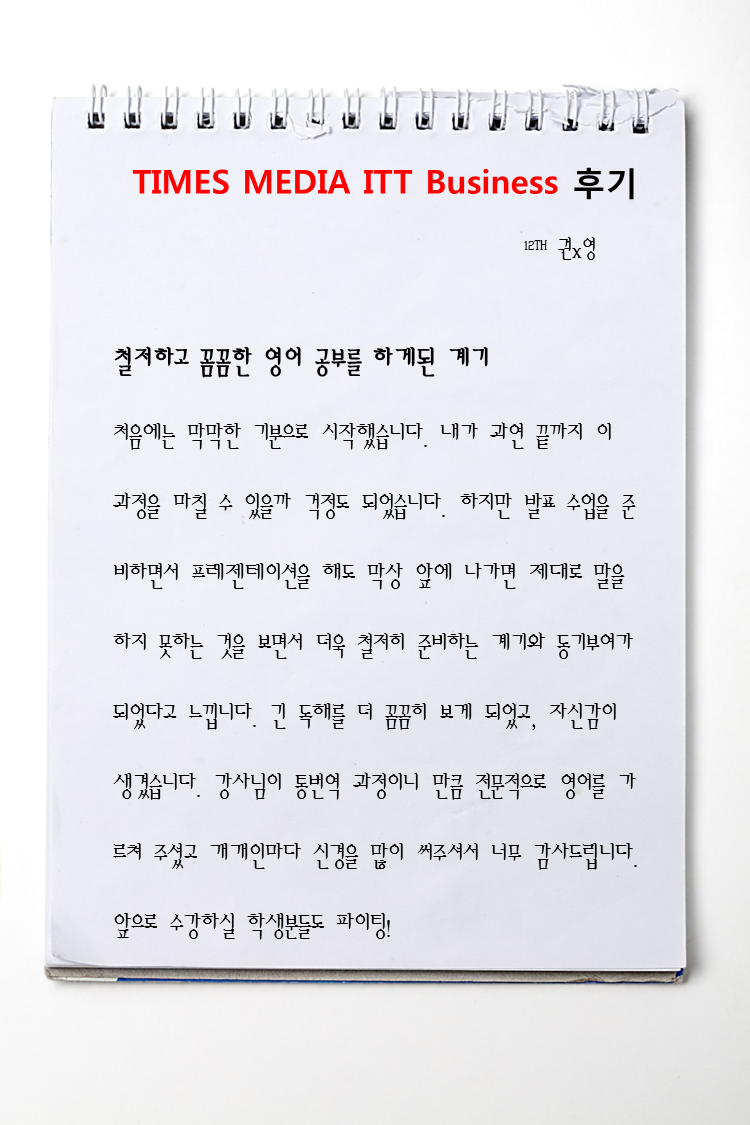 TIMES MEDIA ITT Business 후기
12TH 권x영
철저하고 꼼꼼한 영어 공부를 하게된 계기
처음에는 막막한 기분으로 시작했습니다. 내가 과연 끝까지 이
과정을 마칠 수 있을까 걱정도 되었습니다. 하지만 발표 수업을 준
비하면서 프레젠테이션을 해도 막상 앞에 나가면 제대로 말을
하지 못하는 것을 보면서 더욱 철저히 준비하는 계기와 동기부여가
되었다고 느낍니다. 긴 독해를 더 꼼꼼히 보게 되었고, 자신감이
생겼습니다. 강사님이 통번역 과정이니 만큼 전문적으로 영어를 가
르쳐 주셨고 개개인마다 신경을 많이 써주셔서 너무 감사드립니다.
앞으로 수강하실 학생분들도 파이팅!